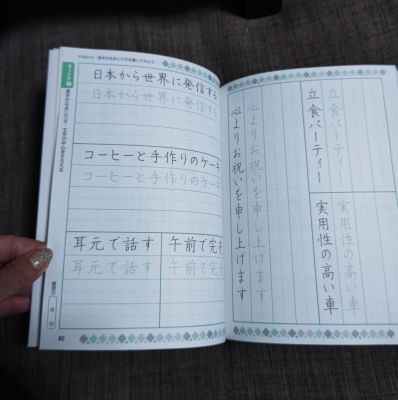 漢字かなまじり文を書いてみよう
日本から世界に発信する
日本から世界に発信する
コーヒーと手作りのケーキ
コーヒーと手作りのケーキ
耳元で話す
耳元で話す
午前で完売
午前で完売
月 日
85
立食パーティー
立食パーティー
実用性の高い車
実用性の高い車
心よりお祝いを申し上げます
心よりお祝いを申し上げます